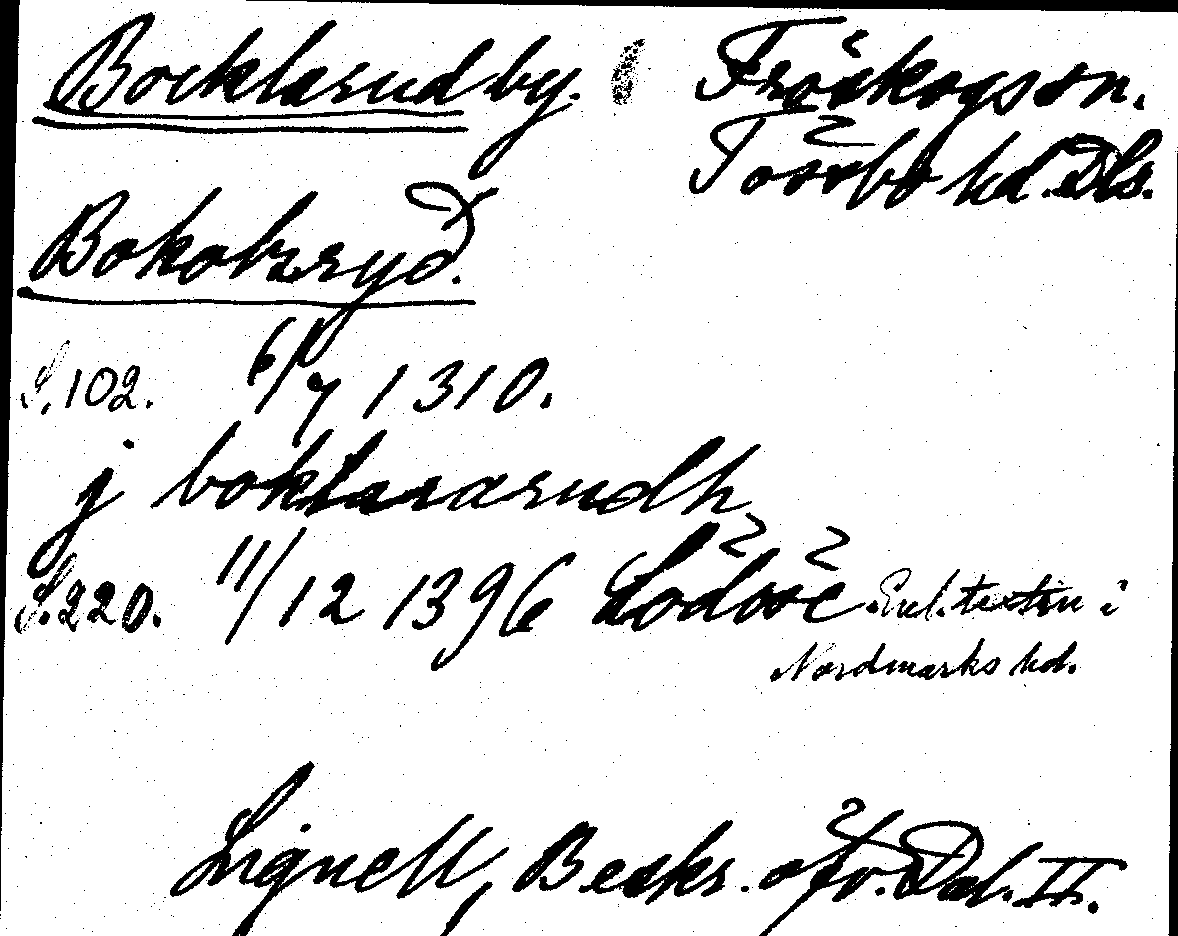 Bocklarud by. Fröskogs sn.
Tössbo hd. Dls.
Bokolzryd.
S. 102. 6/7 1310.
j boklararudh
S. 220. 11/12 1396 Lödöse. Enl. texten i
Nordmarks hd.
Lignell, Beskr. öfv. Dal. II.